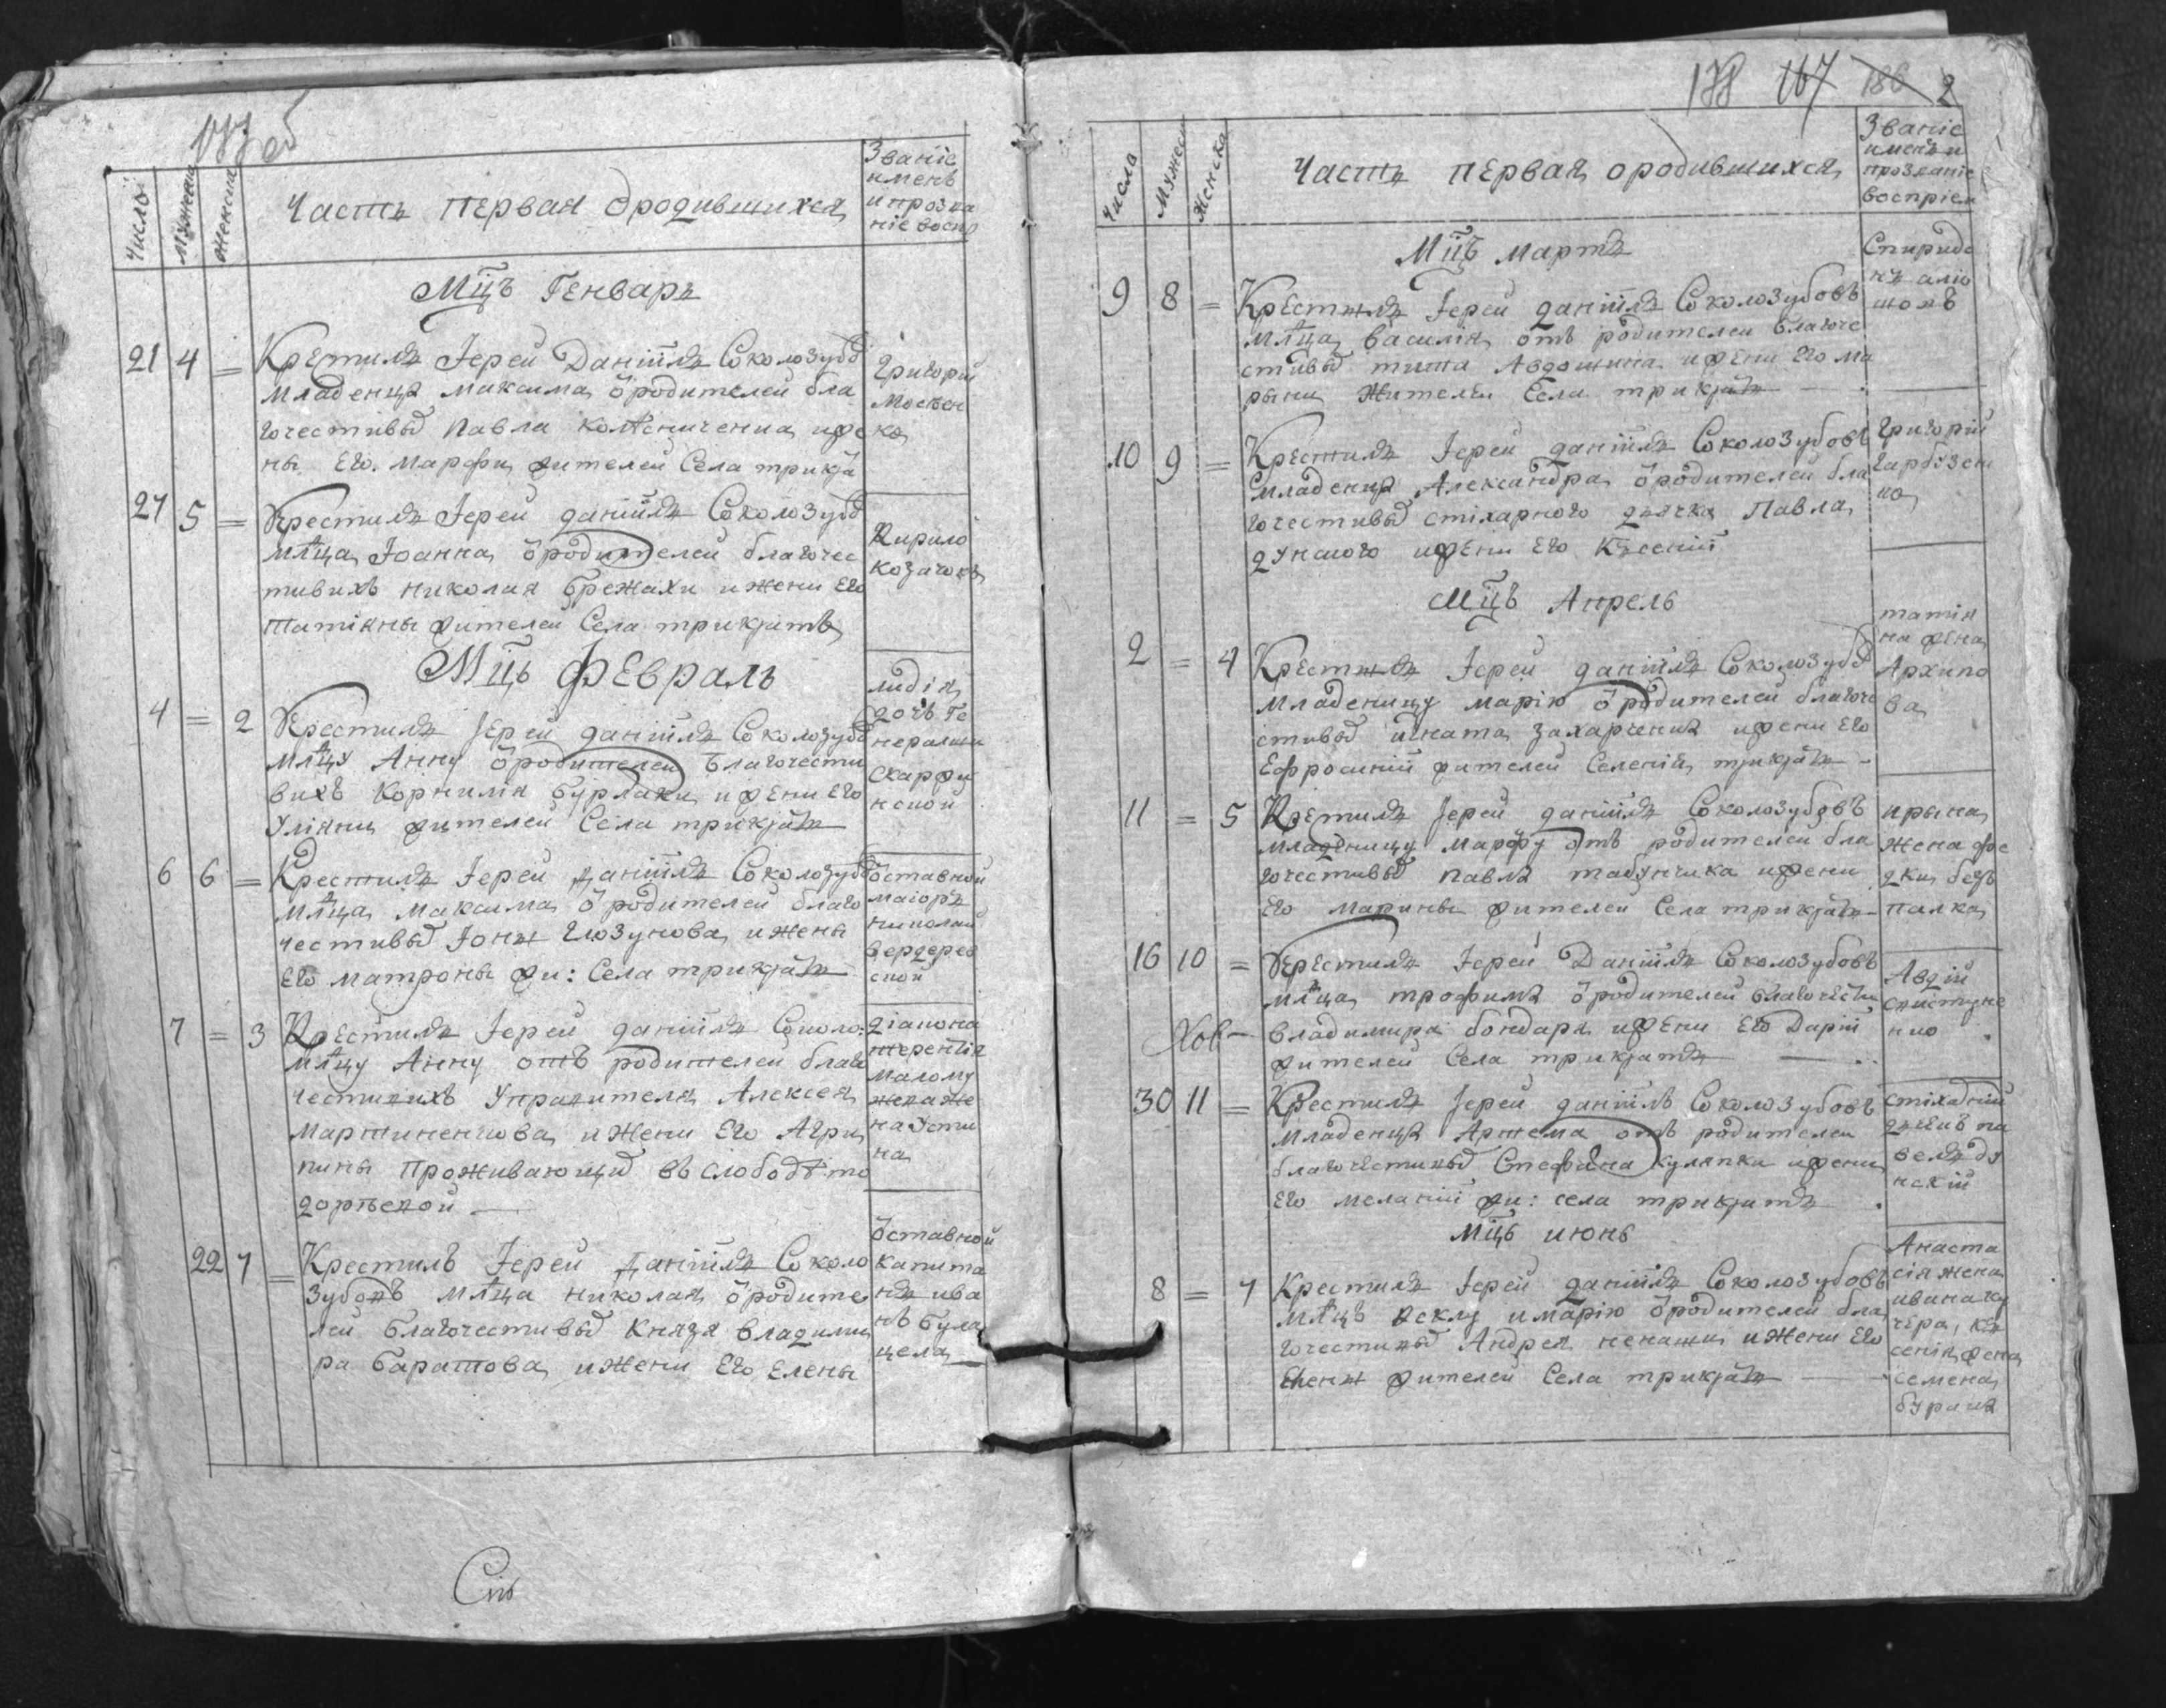 Числы Мужеск Женска
Часть первая ородившихся
Званіе
имень
и прозва
ніе воспр
Мцъ Генваръ
21 4 =
Крестилъ Іерей Даніилъ Соколозубов
младенца максима ѿ родителей бла
гочестивых Павла колѣсниченка и же
ны Его Марфы жителей Села трикрат
Григорій
ко
27 5 =
Крестилъ Іерей даніилъ Соколозубов
млца Іоанна ѿ родителей благочес
тивихъ николая брежахи и жени Его
татіяны жителей Села трикратъ
Кирило
козачокъ
Мцъ Февраль
4 = 2
Крестилъ Іерей даніилъ Соколозубов
млцу Анну ѿ родителей благочести
вихъ Корнилія бурлаки и жени Его
Уліяни жителей Села трикратъ
лидія
дочь ге
нералши
Скаржи
нской
6 6 =
Крестилъ Іерей даніилъ Соколозубов
млца максима ѿ родителей благо
честивых Іоны Глозунова и жены
Его матроны жи: Села трикратъ
ѿставной
маіоръ
николай
вердерев
ской
7 = 3
Крестилъ Іерей даніилъ Соколо:
млцу Анну отъ родителей благо
честивихъ Управителя Алексея
мартиненкова и жени Его Агри
пины проживающих въ слободѣ то
доровской
діакона
терентія
малому
жена же
на Усти
на
22 7 =
Крестилъ Іерей даніилъ Соколо
зубовъ млца николая ѿ родите
лей благочестивых Князя владими
ра баратова и жени Его Елены
ѿставной
капита
нъ ива
нъ була
цела
178 167 186 2
Числа Мужес Женска
Часть первая ородившихся
Званіе
именъ и
прозваніе
воспріем
Мцъ мартъ
9 8 =
Крестилъ Іерей даніилъ Соколозубовъ
млца василія отъ родителей благоче
стивых тита Авдошина и жени Его ма
рыни жителей Села трикратъ
Спиридо
нъ алю
шокъ
10 9 =
Крестилъ Іерей даніилъ Соколозубовъ
младенца Александра ѿ родителей бла
гочестивых стіхарного дячка Павла
дунского и жени Его Ксеніи
Григорій
гарбузен
ко
Мцъ Апрель
2 = 4
Крестилъ Іерей даніилъ Соколозубов
младеницу марію ѿ родителей благоче
стивых игната захарченка и жени Его
Ефросиніи жителей Селенія трикратъ
татія
на жена
Архипо
ва
11 = 5
Крестилъ Іерей даніилъ Соколозубовъ
младеницу марфу отъ родителей бла
гочестивых павла табунчика и жени
Его марины жителей Села трикратъ
ирына
жена фе
дки безъ
палка
16 10 =
Крестилъ Іерей Даніилъ Соколозубовъ
млца трофима ѿ родителей благочести
владимира бондаря и жени Его Даріи
жителей Села трикратъ
Авдій
30 11 =
Крестилъ Іерей даніилъ Соколозубовъ
младенца Артема отъ родителей
благочестивых Стефана кулятки и жени
Его меланіи жи: села трикратъ
стіхарній
дячикъ па
велъ ду
нскій
Мцъ июнь
8 = 7
Крестилъ Іерей даніилъ Соколозубовъ
млцъ Феклу и марію ѿ родителей бла
гочестивых Андрея ненаши и жени Его
Елены жителей Села трикратъ
Анаста
сія жена
ивана ку
чера, кс
сенія жена
семена